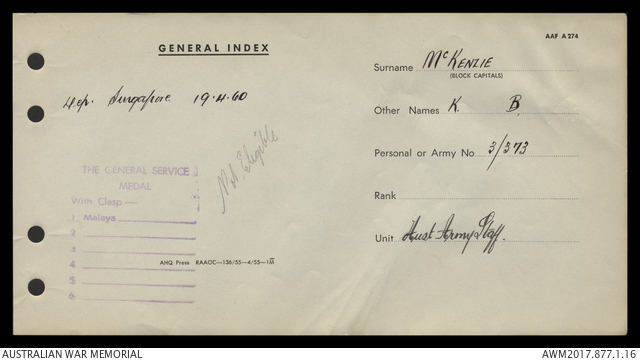 AAF A274
GENERAL INDEX
Surname McKENZIE
(BLOCK CAPITALS)
Dep. Singapore 19.4.60
Other Names K. B.
Not Eligible
Personal or Army No 3/373
THE GENERAL SERVICE
MEDAL
With Clasp —
1 Malaya
2
3
4
5
6
Rank
Unit Aust Army Staff.
AHQ Press RAAOC—136/55—4/55—1M
AUSTRALIAN WAR MEMORIAL
AWM2017.877.1.16